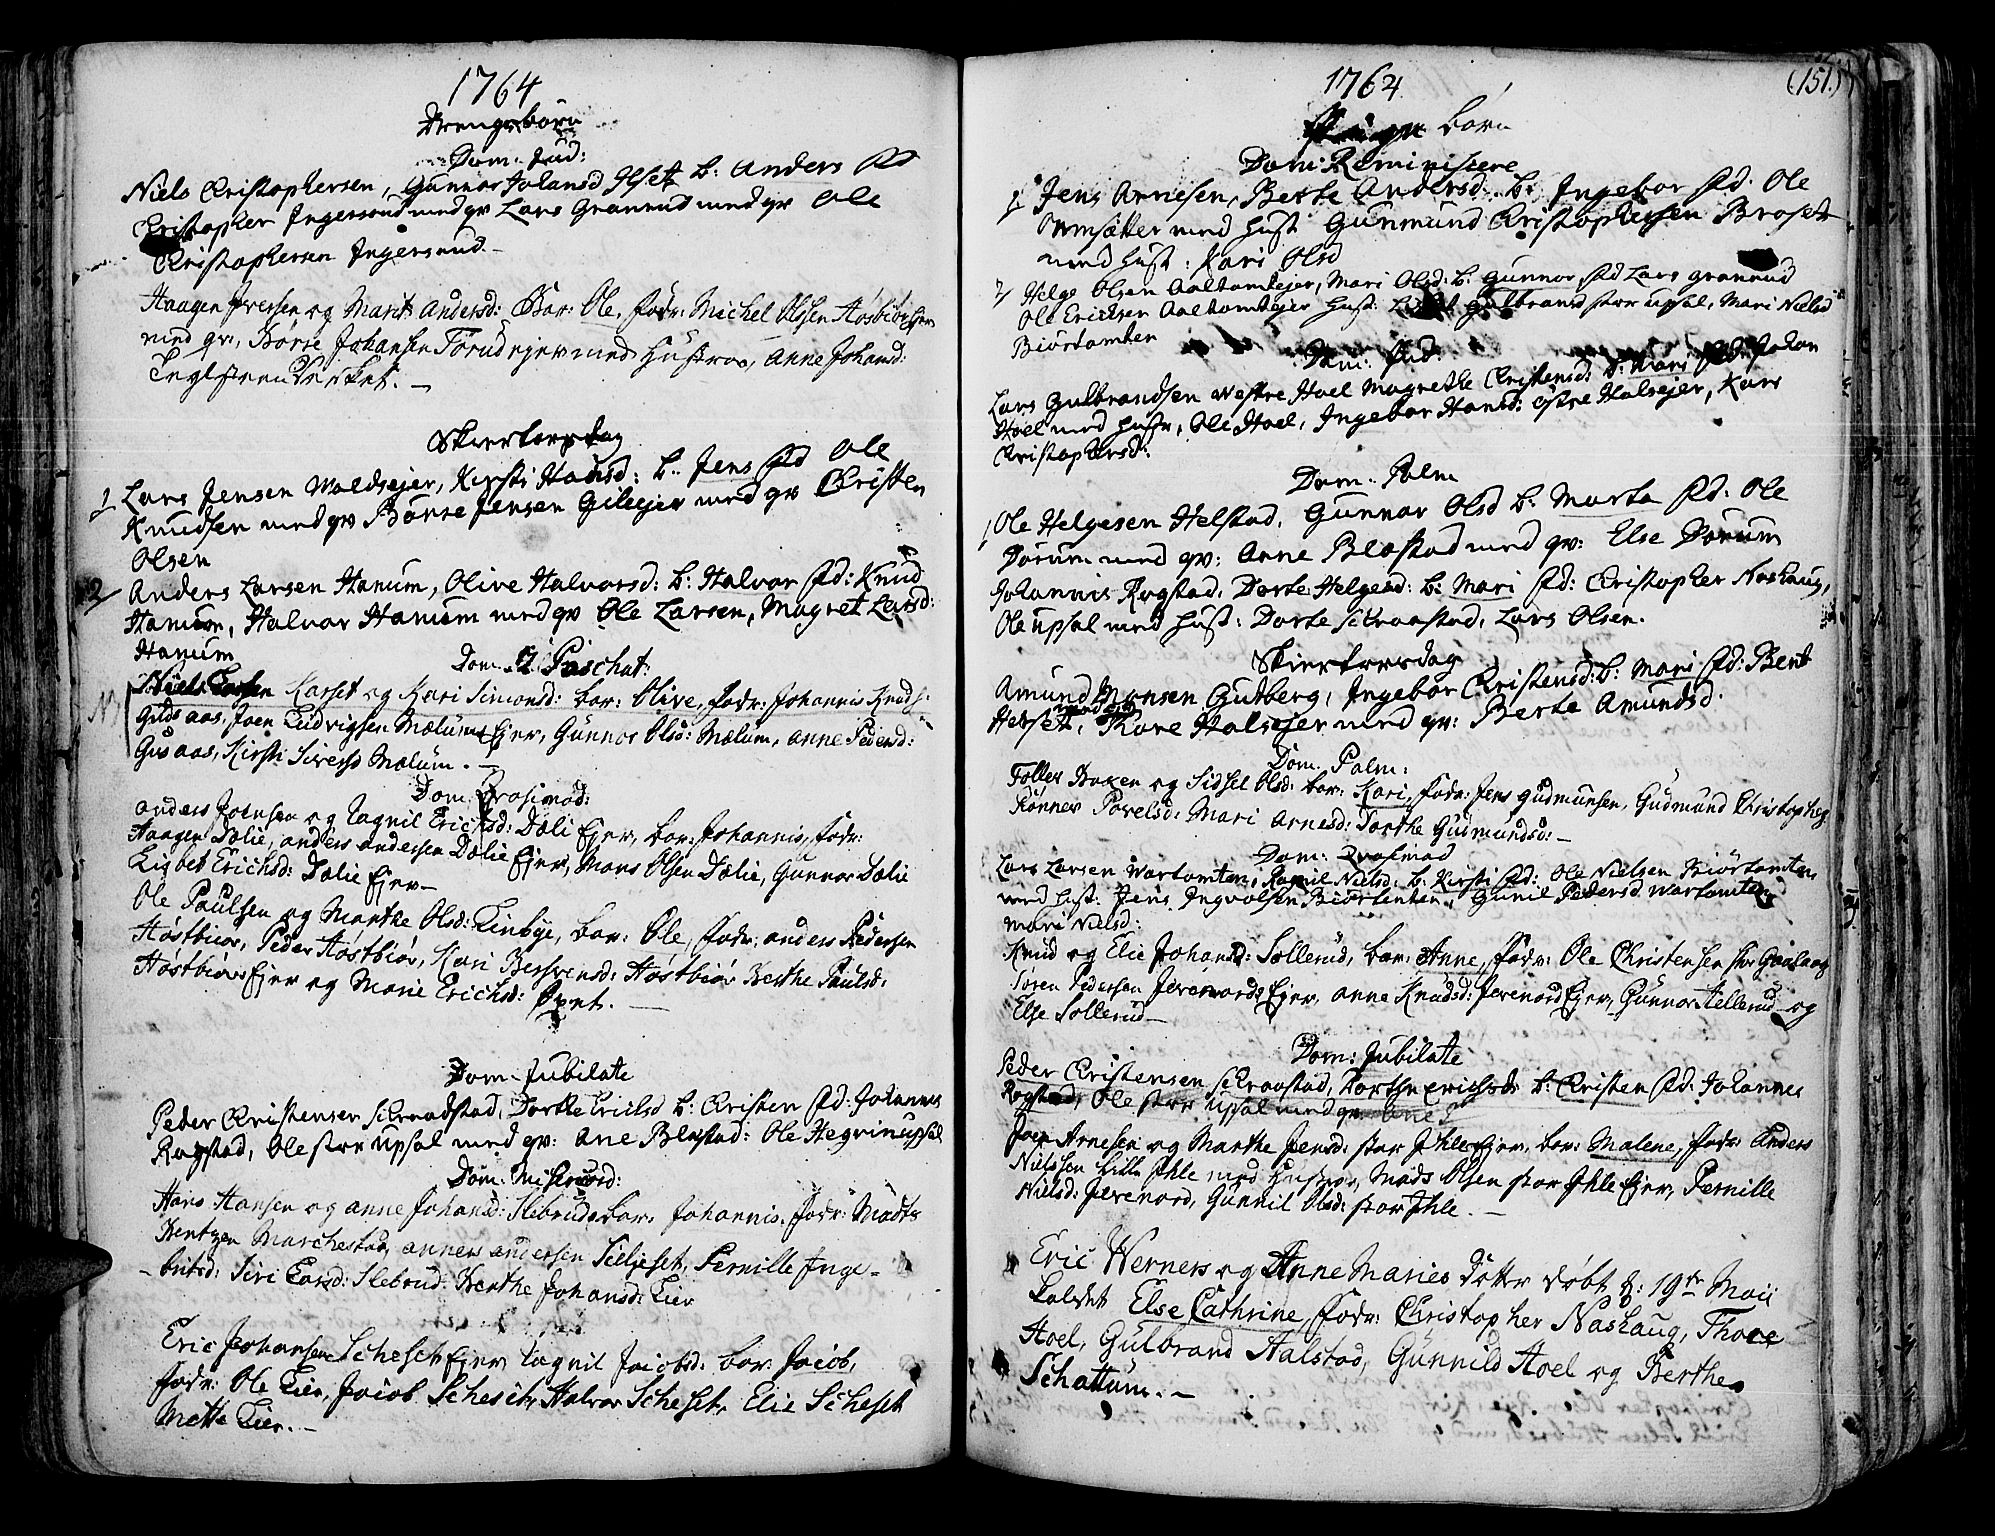 1764
Drengebørn
Dom: Jud:
Niels Cristophersen, Gunnor Johansd Ilset b: Anders fd
Cristopher Ingersrud med qv Lars Granrud med qv Ole
Cristophersen Ingersrud.
Haagen Iversen og Marit Andersd: Bar: Ole, fadr: Michel Olssen
med qv, Børre Johansen Torud ejer med Hustroe, Anne Johansd:

Skiertorsdag
1 Lars Jensen Woldsejer, Kirsti Hansd: b: Jens fd Ole
Knudsen med qv Børre Jensen Gilsejer med qv Christen
Olsen
2 Anders Larsen Hanum, Olive Halvorsd: b: Halvor fd: Knud
Hanum, Halvor Hanum med qv Ole Larsen, Magret Larsd:
Hanum
Dom. 2 Paschat
Niels Larsen Karset og Kari Simonsd: bar: Olive, fadr: Johannis Knuds:
Gudsaas, Joen Ludvigsen Mælum Ejer, Gunnor Olsd: Mælum, Anne Pedersd:
Gusaas, Kirsti Siversd Mælum.
Dom Qvasimod:
Anders Joensen og Ragnil Erichsd: Dæli Ejer, bar: Johannis, fadr:
Haagen Dælie, Anders Andersen Dælie Ejer, Mons Olsen Dælie, Gunnor Dælie
Lisbet Erichsd: Dælie Ejer
Ole Paulsen og Marthe Olsd: Linbye, bar: Ole, fadr: Anders Pedersen
Høstbiør, Peder Høstbiør, Kari Berrvensd: Høstbiør Berthe Paulsd:
Høstbiørs Ejer og Marie Erichsd:
Dom. Jubilate
Peder Cristensen Scraadstad, Dorthe Ericksd b: Cristen fd: Johannes
Rogstad, Ole stor Upsal med qv: Ane Blæstad: Ole Hegrinupsal
Dom: Misericord:
Hans Hansen og Anne Johansd: Slebruds bar: Johannis, fadr: Mads
Bentzen Marchestad, Anners Andersen Selljeset, Pernille Inge-
britsd: Siri Larsd: Slebrud Berthe Johansd: Lier
Eric Johansen Scheset Ejer Ragnil Jacobsd: bar Jacob,
fadr: Ole Lier, Jacob Scheset, Halvor Scheset, Elie Scheset
Mette Lier.
1764
(151.)
Pige børn
Dom: Reminiscere
1 Jens Arnesen, Berte Andersd. b: Ingebor fd. Ole
Ormsætter med Hust Gunmund Cristophersen Broset
med Hust: Kari Olsd
2 Helge Olsen Aaltomtejer, Mari Olsd: b: Gunnor fd Lars Granrud
Ole Ericksen Aaltomtejer Hust: Gulbrand stor Upsal, Mari Nielsd
Biørtomten
Dom: Jud
Lars Gulbrandsen Westre Hoel Magrethe Cristensd: b: Mari fd: Johan
Hoel med Hustr, Ole Hoel, Ingebor Hansd: Østre Halsejer, Kari
Cristophersd:
Dom: Palm
1 Ole Helgesen Helstad, Gunnor Olsd b: Marta fd: Ole
Dorum med qv: Anne Blæstad med qv: Else Dorum
Johannis Rogstad, Dorte Helgesd: b: Mari fd: Cristopher Naskaug,
Ole Upsal med Hust: Dorte Scraastad, Lars Olsen.
Skiertorsdag
Amund Monsen Gutberg, Ingebor Cristensd: b: Mari fd: Bent
Helset, med qv Thore Halsejer med qv: Berte Amundsd.
Dom. Palm:
Follev Baxen og Sidsel Olsd: bar: Kari, fadr: Jens Gudmunsen, Gudmund Christophers
Rønnev Povelsd: Mari Arnesd: Dorthe Gudmundsd:
Dom: Qvasimod
Lars Larsen Wartomten, Ragnil Nielsd: b: Kirsti fd: Ole Nielsen Biørtomten
med Hust: Jens Ingvolsen Biørtomten, Gunil Pedersd Wartomten
Mari Nielsd:
Knud og Elie Johansd: Sollerud, bar: Anne, fadr: Ole Christensen
Søren Pedersen Jevenords Ejer, Anne Knudsd: Jevenord Ejer, Gunnor Hellerud og
Else Sollerud
Dom: Jubilate
Peder Cristensen Scraastad, Dorthe Ericksd: b: Cristen fd: Johannes
Rogstad, Ole stor Upsal med qv: Ane
Joen Arnesen og Marthe Jensd: stor Ihle Ejer, bar: Malene, fadr: Anders
Nielssen Lille Ihle med Hustroe, Mads Olsen stor Ihle Ejer, Pernille
Nielsd: Jevenord, Gunnil Olsd: stor Ihle.
Eric Werners og Anne Maries Dotter Døbt d: 19de Maii
kaldet Else Cathrine, fadr: Christopher Naskaug, Thore
Hoel, Gulbrand Halstad, Gunnild Hoel og Berthe
Schattum.